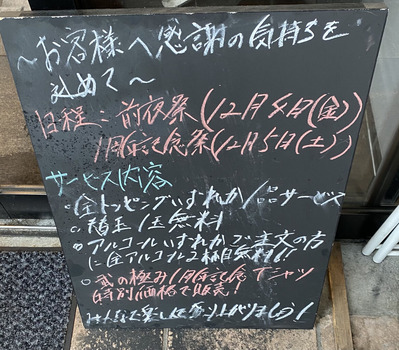 ～お客様へ感謝の気持ちを
込めて～
日程：前夜祭(12月4日(金))
1周年記念祭(12月5日(土))
サービス内容
○全トッピングいずれか1品サービス
○替玉1玉無料
○アルコールいずれかご注文の方
に全アルコール2杯目無料!!
○武の極み1周年記念Tシャツ
特別価格で販売!
みんなで楽しく盛り上がりましょう!